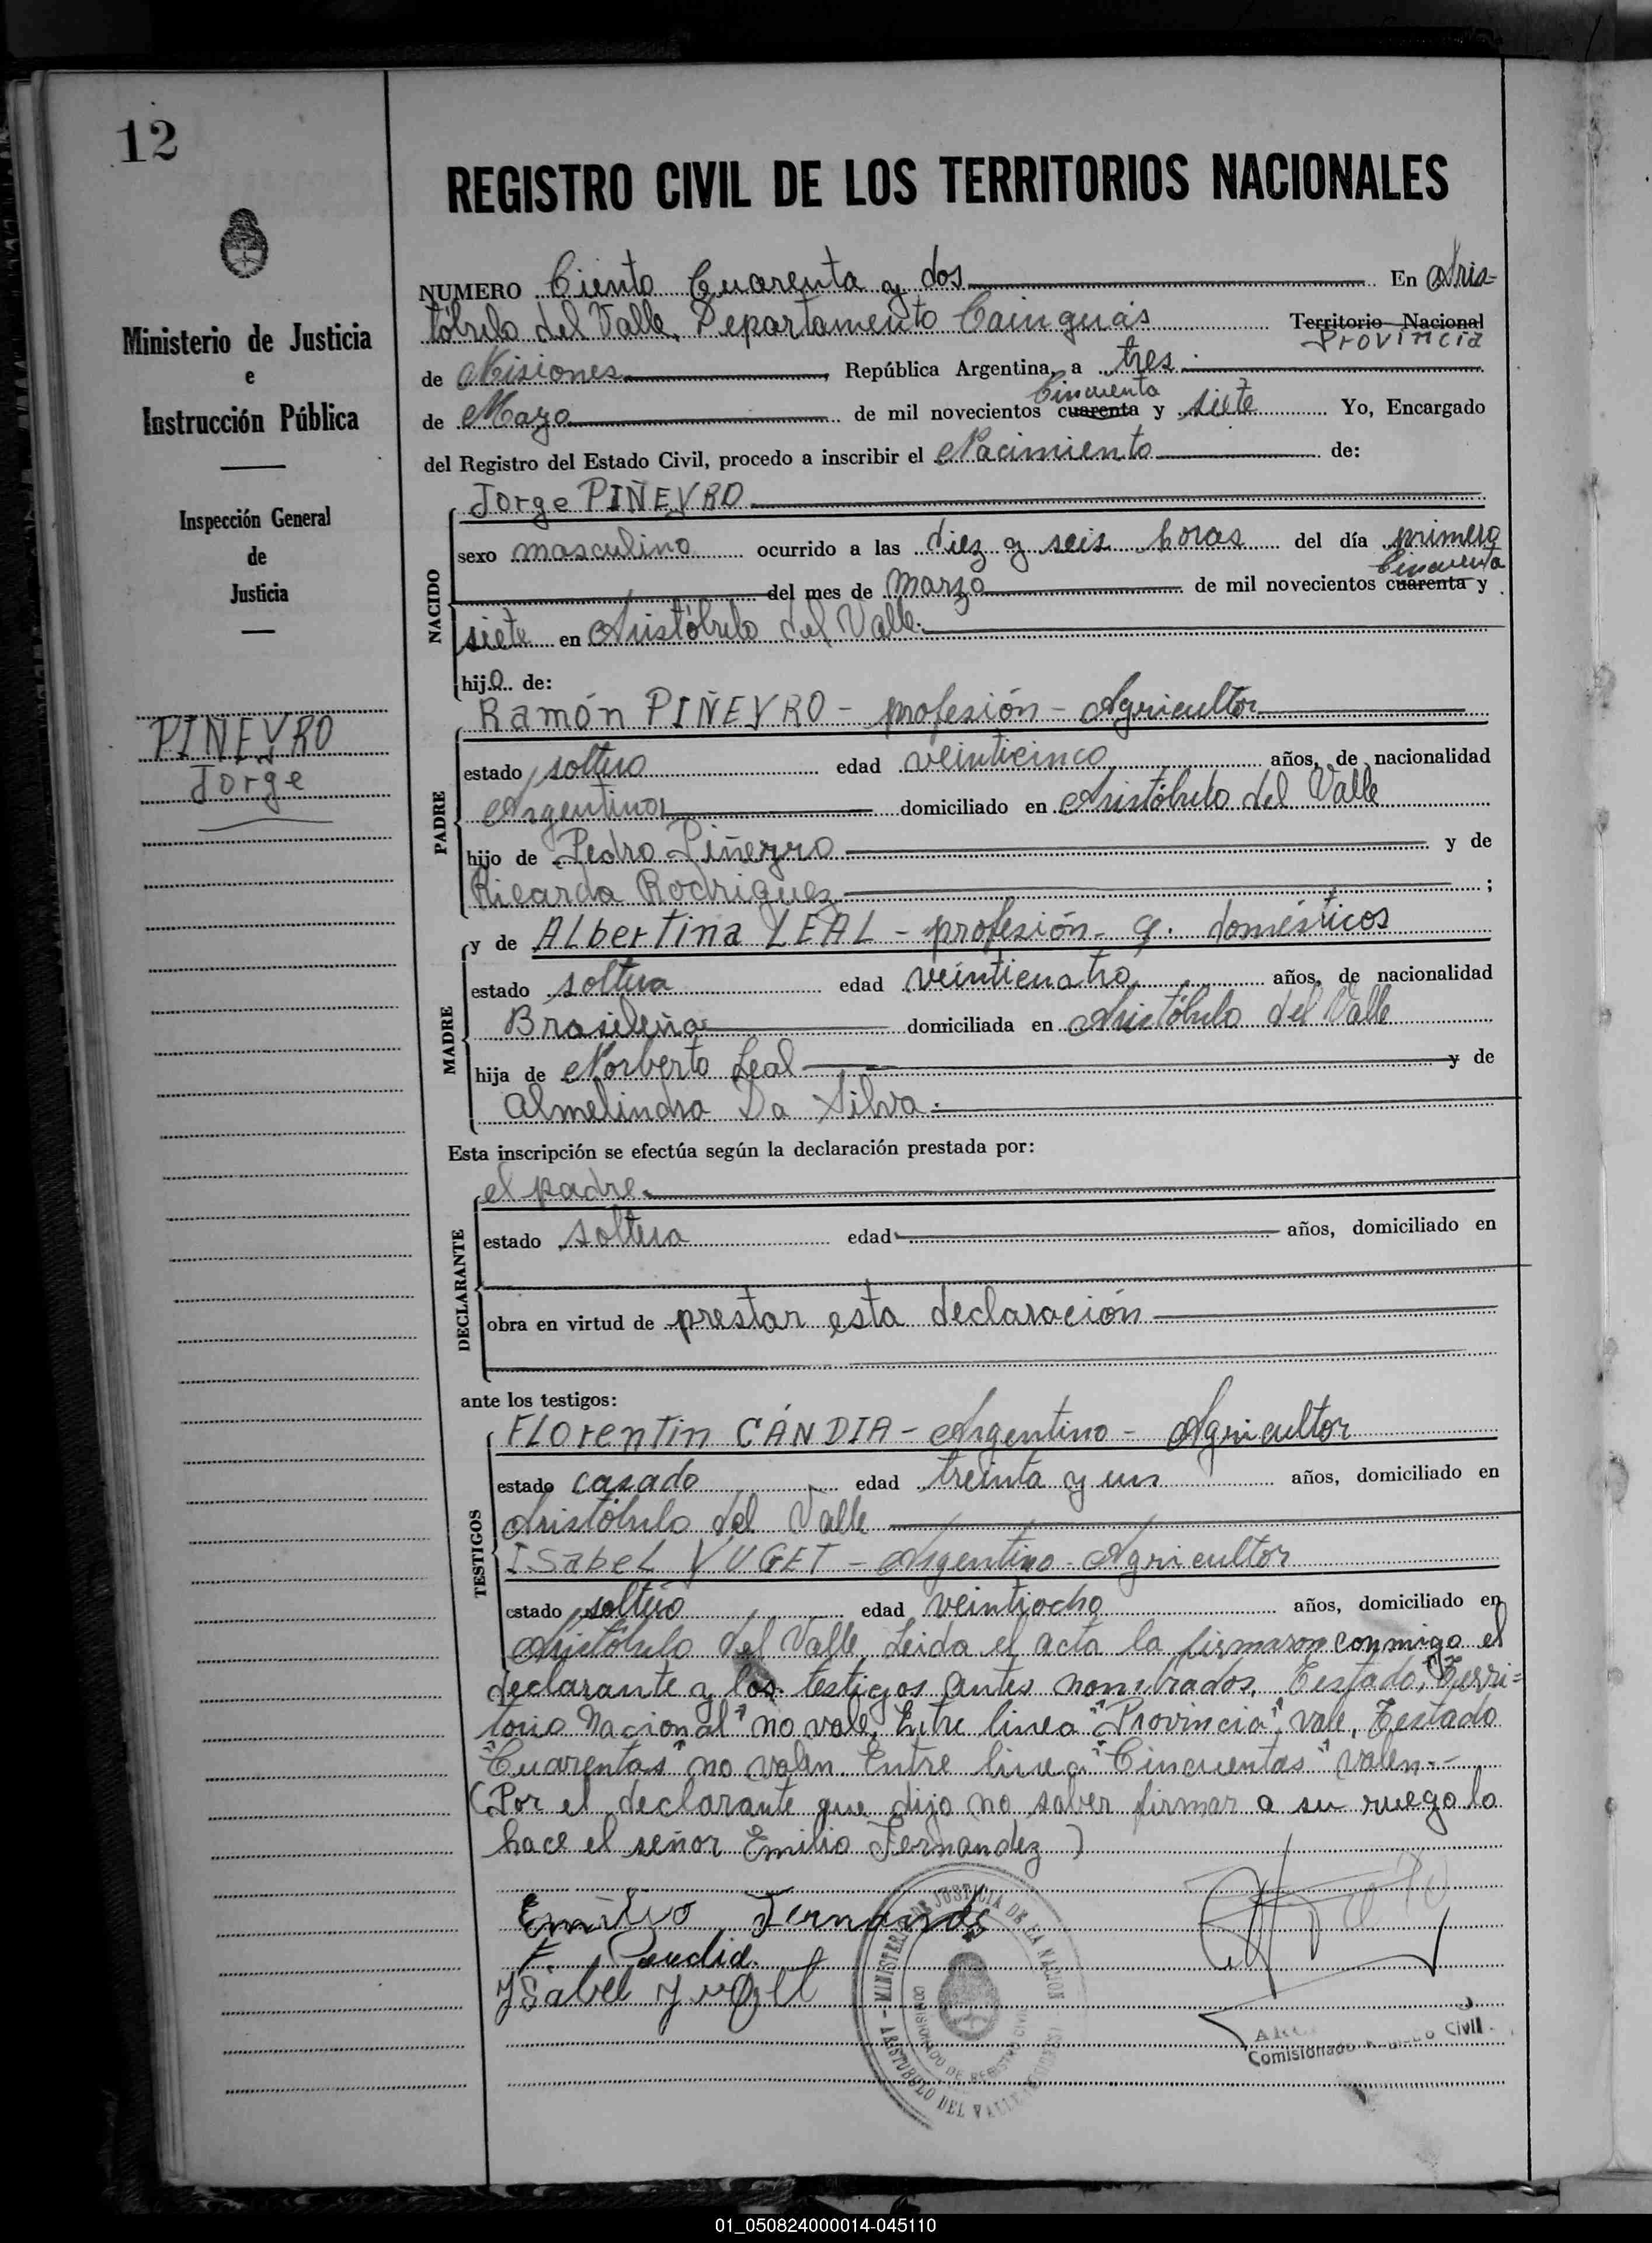 12
REGISTRO CIVIL DE LOS TERRITORIOS NACIONALES
Ministerio de Justicia
e
Instrucción Pública
Inspección General
de
Justicia
PIÑEYRO
Jorge
NUMERO Ciento Cuarenta y dos En Aris-
tóbulo del Valle, Departamento Cainguás Territorio Nacional
Provincia
de Misiones, República Argentina, a tres
Cincuenta
de Mayo de mil novecientos cuarenta y siete Yo, Encargado
del Registro del Estado Civil, procedo a inscribir el Nacimiento de:
NACIDO
Jorge PIÑEYRO
sexo masculino ocurrido a las diez y seis horas del día primero
Cincuenta
del mes de Marzo de mil novecientos cuarenta y
siete en Aristóbulo del Valle.
hijo de:
PADRE
Ramón PIÑEYRO - profesión - Agricultor
estado soltero edad veinticinco años, de nacionalidad
Argentina domiciliado en Aristóbulo del Valle
hijo de Pedro Piñeyro y de
Ricarda Rodriguez ;
MADRE
y de ALberTina LEAL - profesión - q. domésticos
estado soltera edad veinticuatro años, de nacionalidad
Brasileña domiciliada en Aristóbulo del Valle
hija de Norberto Leal y de
Almelindra Da Silva.
Esta inscripción se efectúa según la declaración prestada por:
DECLARANTE
el padre.
estado soltero edad años, domiciliado en
obra en virtud de prestar esta declaración
ante los testigos:
TESTIGOS
FLOrenTin CÁNDIA - Argentino - Agricultor
estado casado edad treinta y un años, domiciliado en
Aristóbulo del Valle
ISabeL YUGET - Argentino - Agricultor
estado soltero edad veintiocho años, domiciliado en
Aristóbulo del Valle. Leida el acta la firmaron conmigo el
declarante y los testigos antes nombrados. Testado, "Terri=
torio Nacional" no vale, Entre linea "Provincia", vale, Testado
"Cuarentas" no valen. Entre linea "Cincuentas" valen.-
(Por el declarante que dijo no saber firmar a su ruego lo
hace el señor Emilio Fernandez)
Emilio Fernandes
F. Candia.
YSabel Yuget
MINISTERIO DE JUSTICIA DE LA NACION
COMISIONADO DE REGISTRO CIVIL
ARISTOBULO DEL VALLE
Comisionado Registro Civil
01_050824000014-045110